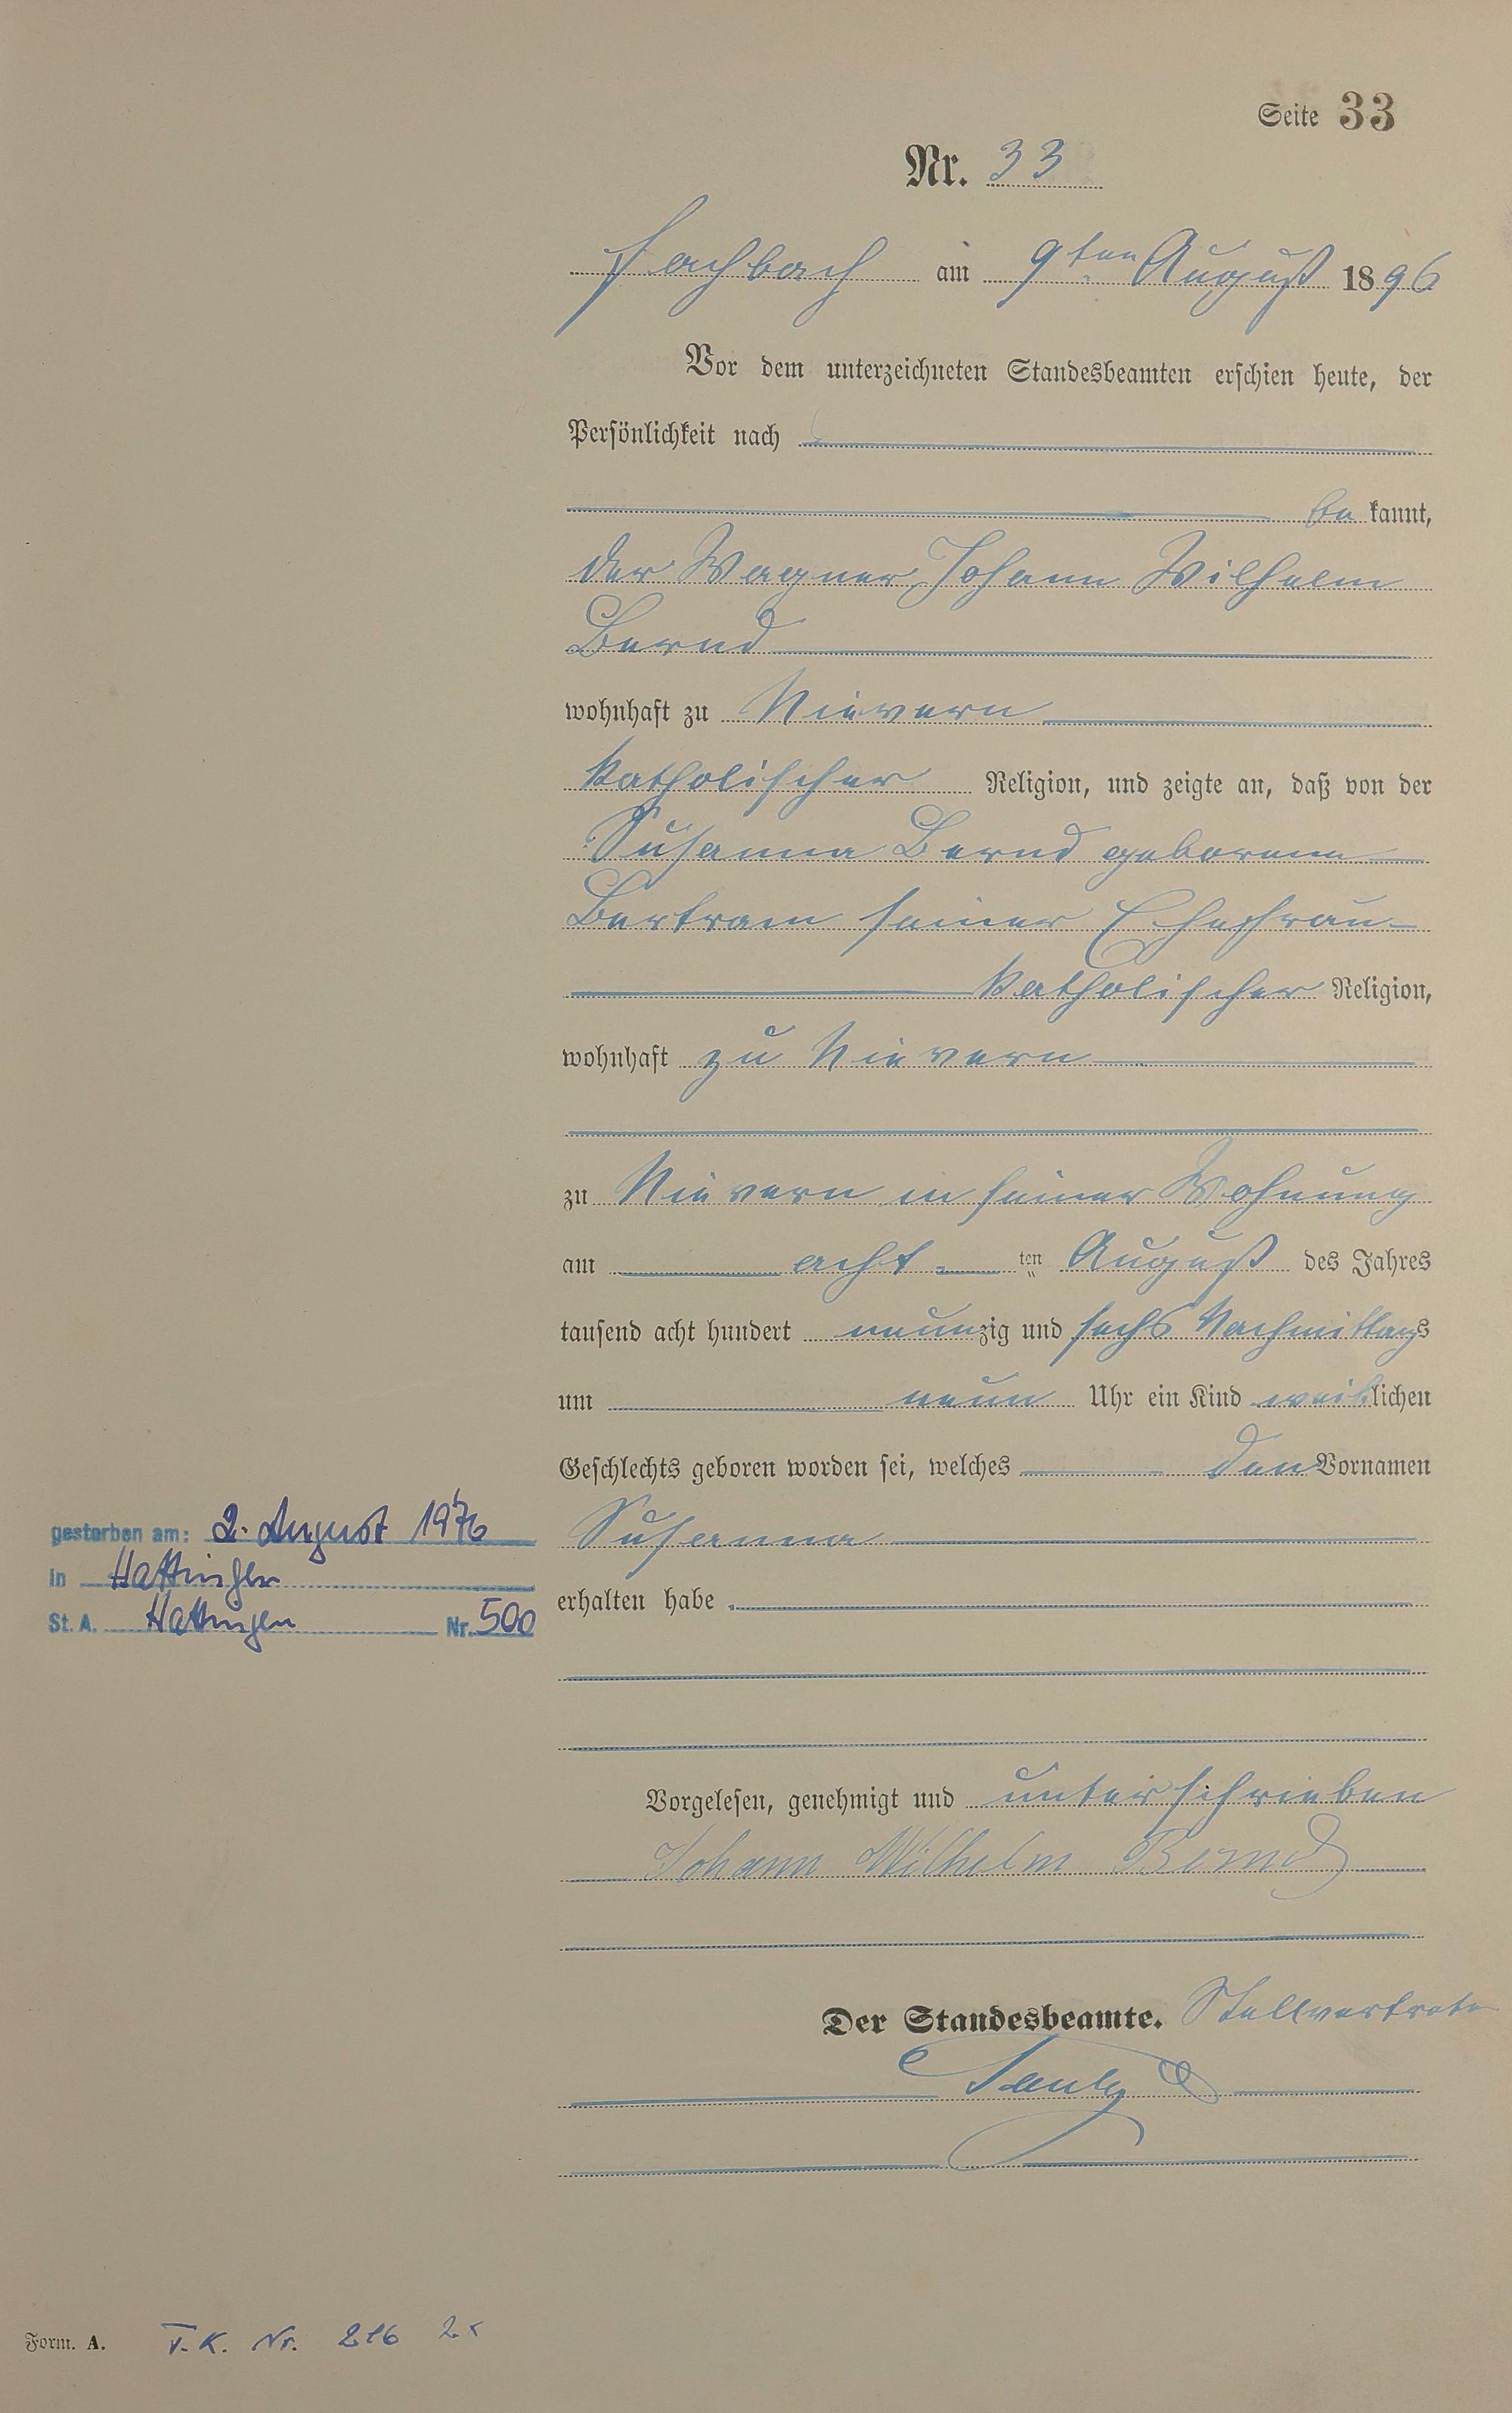 Seite 33
Nr. 33
Fachbach am 9ten August 1896
Vor dem unterzeichneten Standesbeamten erschien heute, der
Persönlichkeit nach
be kannt,
der Wagner Johann Wilhelm
Bernd
wohnhaft zu Nievern
katholischer Religion, und zeigte an, daß von der
Susanna Bernd geborenen
Bertram seiner Ehefrau
katholischer Religion,
wohnhaft zu Nievern
zu Nievern in seiner Wohnung
am acht ten August des Jahres
tausend acht hundert neunzig und sechs Nachmittags
um neun Uhr ein Kind weiblichen
Geschlechts geboren worden sei, welches den Vornamen
gestorben am: 2. August 1976
Susanna
in Hattingen
erhalten habe.
St. A. Hattingen Nr. 500
Vorgelesen, genehmigt und unterschrieben
Johann Wilhelm Bernd
Der Standesbeamte. Stellvertreter
Form. A. T. K. Nr. 216